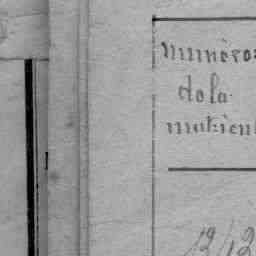 numéros
de la
matricul
1212